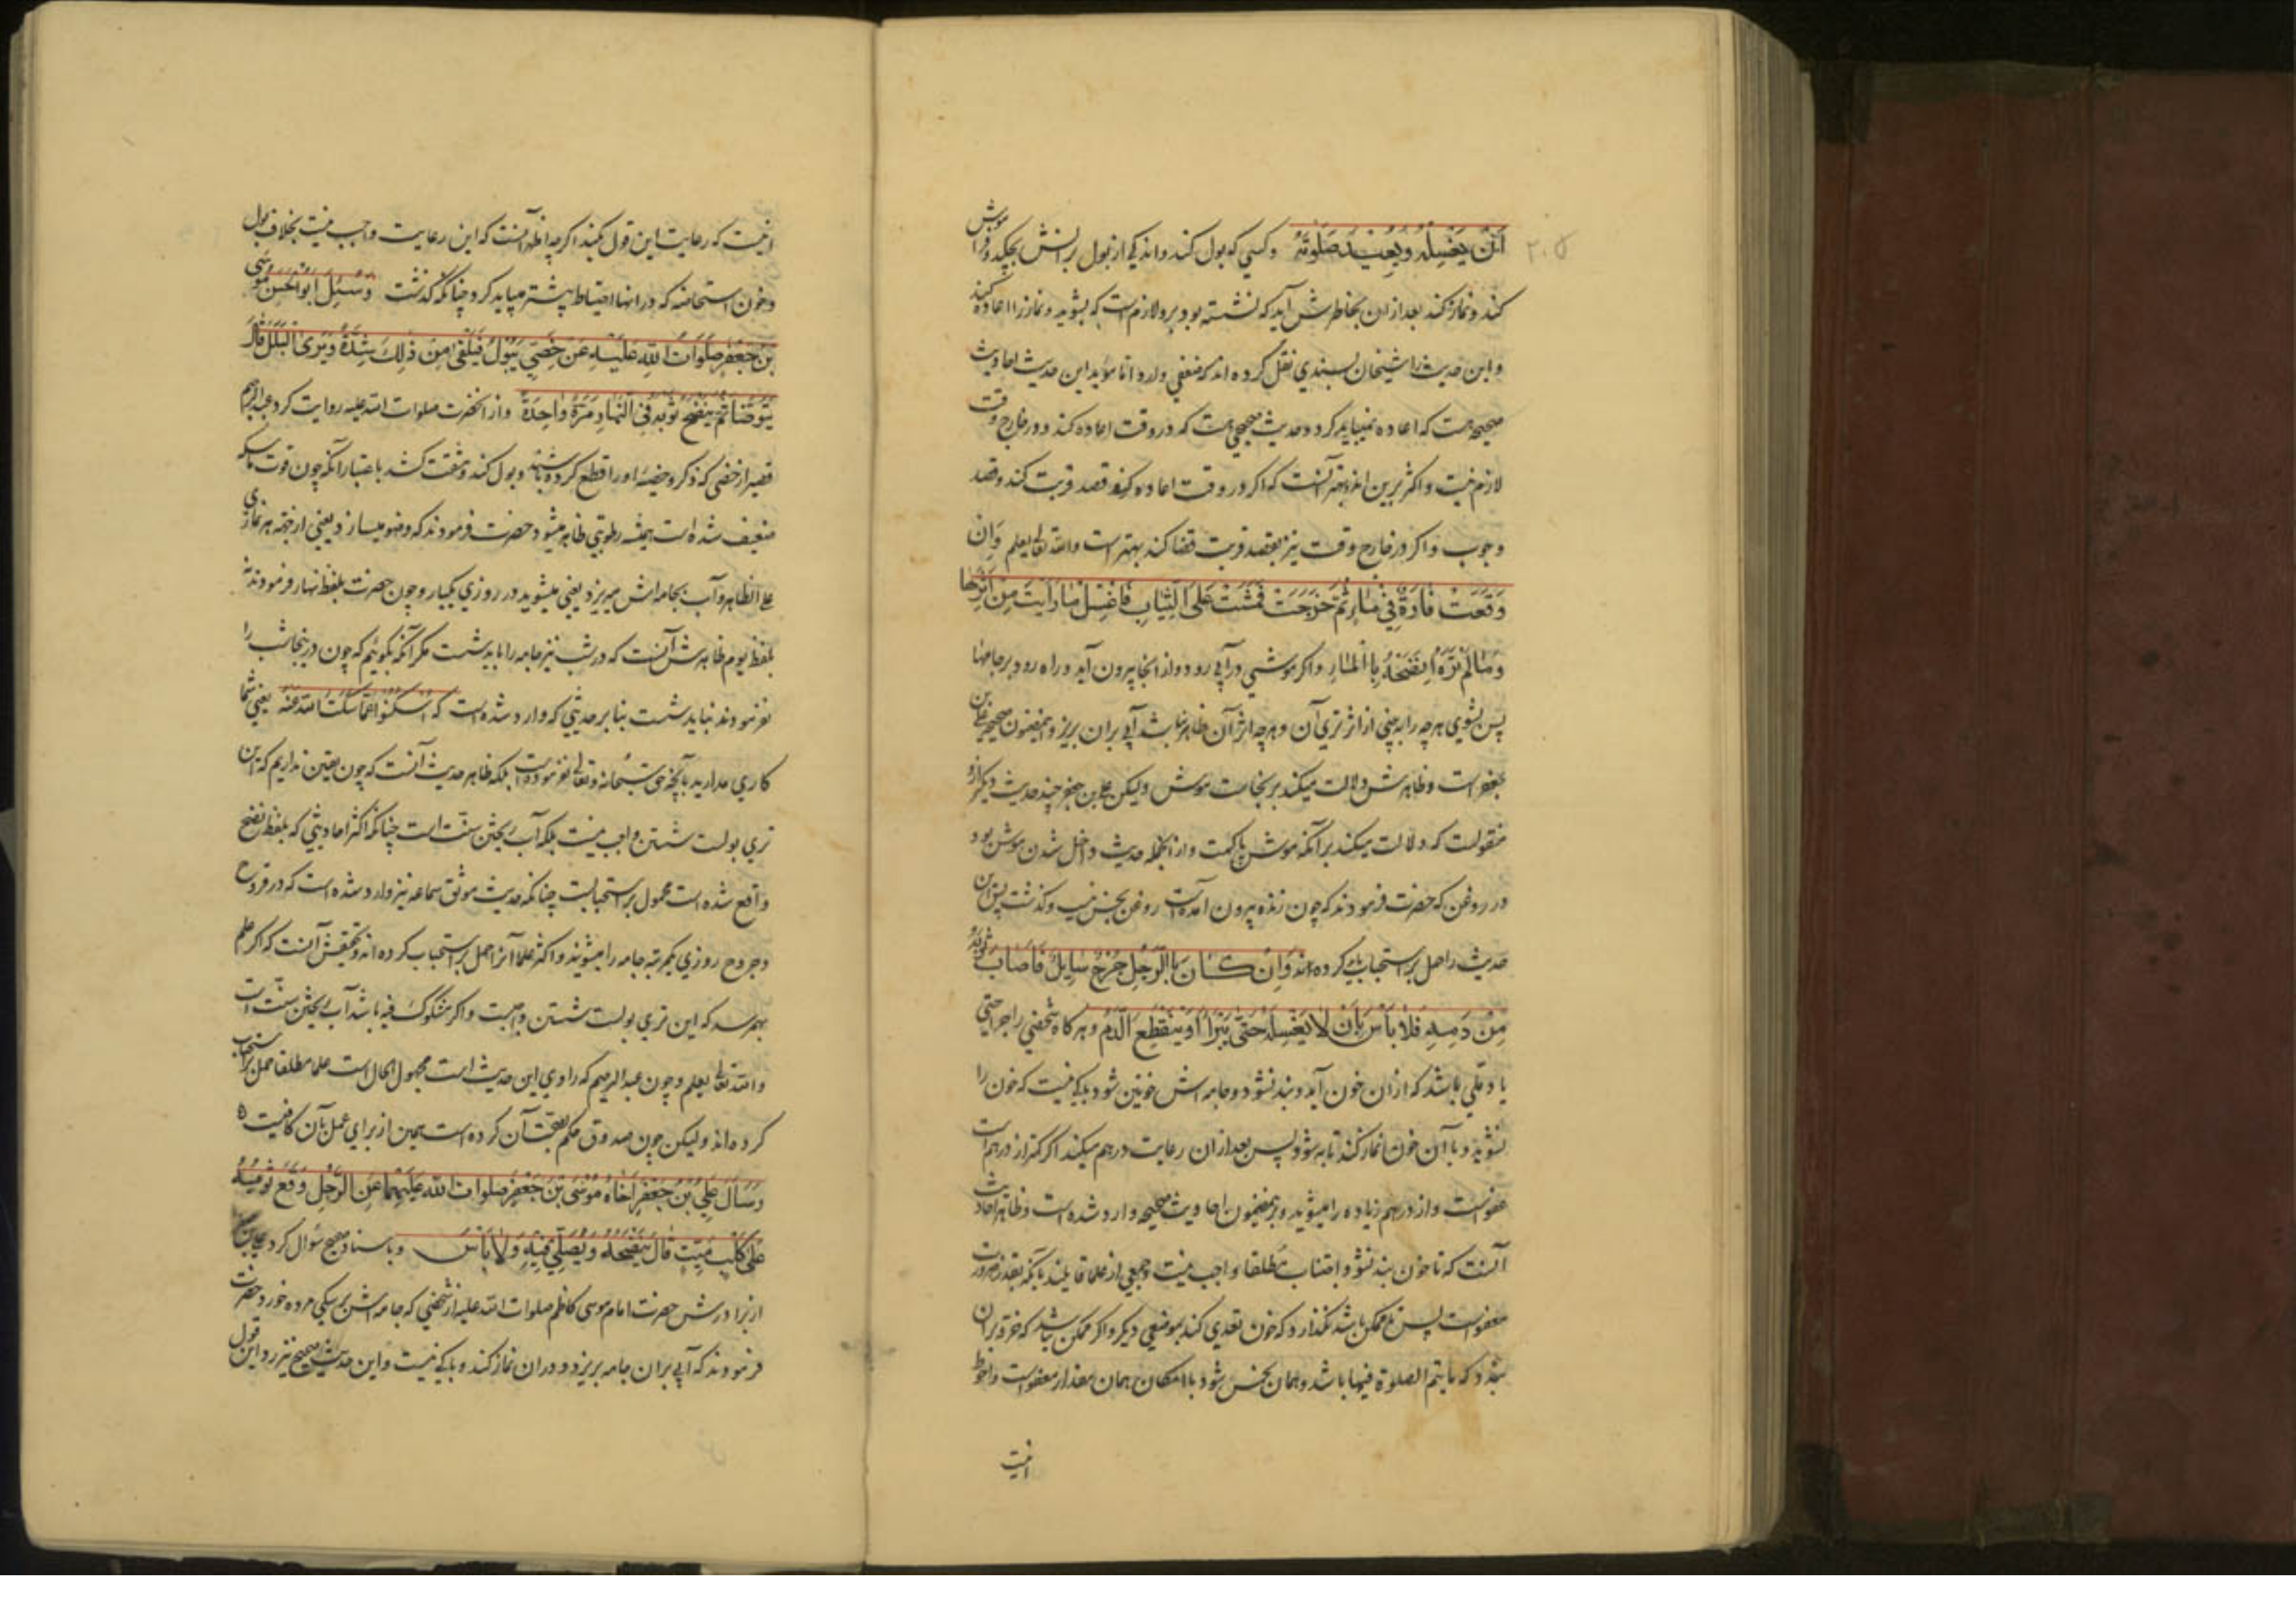 ۲۰۵
اَنْ یَغْسِلَهُ وَیُعِیْدَ صَلٰوتَهُ وکسی که بول کند واندکی از بول برانش بچکد وفراموش
کند ونماز کند بعد ازان بخاطرش آید که نشسته بود برو لازم است که بشوید ونماز را اعاده کند
واین حدیث را شیخان بسندی نقل کرده اند که ضعفی دارد اما مؤید این حدیث احادیث
صحیحه هست که اعاده میباید کرد وحدیث صحیحی هست که در وقت اعاده کند ودر خارج وقت
لازم نیست واکثر برین اند وبهتر آنست که اگر در وقت اعاده کند قصد قربت کند وقصد
وجوب واگر در خارج وقت نیز بقصد قربت قضا کند بهتر است والله تعالی یعلم وَاِن
وَقَعَتْ فَارَةٌ فِی مَاءٍ ثُمَّ خَرَجَتْ فَمَشَتْ عَلَی الثِّیَابِ فَاغْسِلْ مَا رَاَیْتَ مِنْ اَثَرِهَا
وَمَا لَمْ تَرَهُ اِنْضَحْهُ بِالْمَاءِ واگر موشی در آبی رود واز انجا بیرون آید وراه رود بر جامها
پس بشوی هرچه را به بینی از اثر تری آن وهرچه اثر آن ظاهر نباشد آبی بران بریز وبهمین مضمون صحیحه علی بن
جعفر است وظاهرش دلالت میکند بر نجاست موش ولیکن علی بن جعفر چند حدیث دیگر ازو
منقولست که دلالت میکند بر آنکه موش پاکست واز انجمله حدیث داخل شدن موش بود
در روغن که حضرت فرمودند که چون زنده بیرون آمده است روغن نجس نیست وگذشت پس این
حدیث را حمل بر استحباب کرده اند وَاِنْ کَانَ بِالرَّجُلِ جُرْحٌ سَایِلٌ فَاَصَابَ ثَوْبَهُ
مِنْ دَمِهِ فَلَا بَاْسَ بِاَنْ لَا یَغْسِلَهُ حَتّٰی یَبْرَأَ اَوْ یَنْقَطِعَ الدَّمُ وهرگاه شخصی را جراحتی
یا دملی باشد که ازان خون آید وبند نشود وجامه اش خونین شود باکی نیست که خون را
نشوید وبا آن خون نماز کند تا به شود پس بعد ازان رعایت درهم میکند اگر کمتر از درهم است
عفو است واز درهم زیاده را میشوید وبرین مضمون احادیث صحیحه وارد شده است وظاهر احادیث
آنست که تا خون بند نشود اجتناب مطلقا واجب نیست وجمعی از علما قایلند بآنکه بقدر ضرورت
معفو است پس تا ممکن باشد نگذارد که خون تعدی کند بموضعی دیگر واگر ممکن باشد که خرقه بران
بندد که ما یتم الصلوة فیها باشد وهمان نجس شود با امکان همان مقدار معفو است واحوط
انیست
انیست که رعایت این قول کند اگرچه اظهر آنست که این رعایت واجب نیست بخلاف بول
وخون استحاضه که در انها احتیاط بیشتر میباید کرد وچنانکه گذشت وَسُئِلَ اَبُوالْحَسَنِ مُوسَی
بْنُ جَعْفَرٍ صَلَوَاتُ اللّٰهِ عَلَیْهِ عَنْ خَصِیٍّ یَبُوْلُ فَیَلْقٰی مِنْ ذٰلِكَ شِدَّةً وَیَرَی الْبَلَلَ قَالَ
یَتَوَضَّأُ ثُمَّ یَنْضَحُ ثَوْبَهُ فِی النَّهَارِ مَرَّةً وَاحِدَةً واز انحضرت صلوات الله علیه روایت کرد عبدالرحیم
قصیر از خصی که ذکر وخصیه او را قطع کرده باشند وبول کند ومشقت کشد باعتبار آنکه چون قوت ماسکه
ضعیف شده است همیشه رطوبتی ظاهر میشود حضرت فرمودند که وضو میسازد یعنی از جهة هر نمازی
علی الظاهر وآب بجامه اش میریزد یعنی میشوید در روزی یکبار وچون حضرت بلفظ نهار فرمودند نه
بلفظ یوم ظاهرش آنست که در شب نیز جامه را باید شست مگر آنکه بگوئیم که چون در اینجا شب را
نفرمودند نباید شست بنابر حدیثی که وارد شده است که اُسْکُتُوا عَمَّا سَکَتَ اللّٰهُ عَنْهُ یعنی شما
کاری مدارید بآنچه حق سبحانه وتعالی نفرموده است بلکه ظاهر حدیث آنست که چون یقین نداریم که این
تری بولست شستن واجب نیست بلکه آب ریختن سنت است چنانکه اکثر احادیثی که بلفظ نضح
واقع شده است محمول بر استحبابست چنانکه حدیث موثق سماعه نیز وارد شده است که در قروح
وجروح روزی یکمرتبه جامه را میشویند واکثر علما آنرا حمل بر استحباب کرده اند وتحقیقش آنست که اگر علم
بهم رسد که این تری بولست شستن واجبست واگر مشکوک فیه باشد آب ریختن سنت است
والله تعالی یعلم وچون عبدالرحیم که راوی این حدیث است مجهول الحال است علما مطلقا حمل بر استحباب
کرده اند ولیکن چون صدوق حکم بصحت آن کرده است همین از برای عمل بآن کافیست
وَسَاَلَ عَلِیُّ بْنُ جَعْفَرٍ اَخَاهُ مُوْسَی بْنَ جَعْفَرٍ صلوات الله عَلَیْهِمَا عَنِ الرَّجُلِ وَقَعَ ثَوْبُهُ
عَلٰی کَلْبٍ مَیِّتٍ قَالَ یَنْضَحُهُ وَیُصَلِّی فِیْهِ وَلَا بَاْسَ وباسناد صحیح سؤال کرد علی بن
از برادرش حضرت امام موسی کاظم صلوات الله علیه از شخصی که جامه اش بر سگی مرده خورد حضرت
فرمودند که آبی بران جامه بریزد ودران نماز کند وباکی نیست واین حدیث صحیح نیز رد این قول